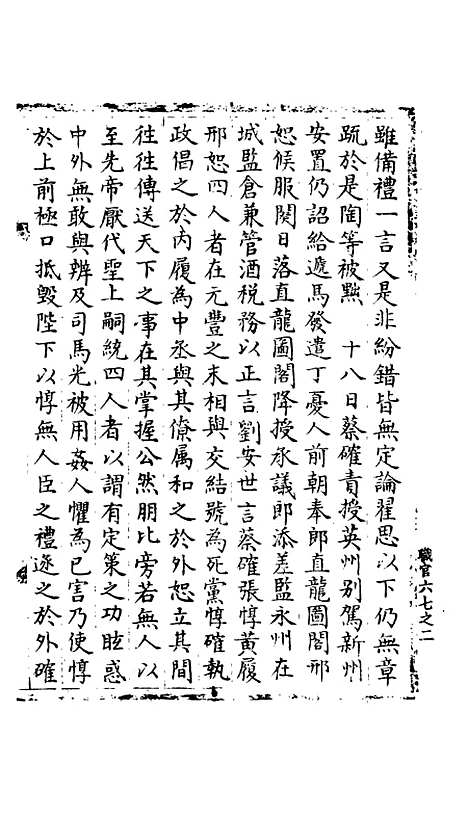 雖備禮一言又是非紛錯皆無定論翟思以下仍無章
疏於是陶等被黜　十八日蔡確責授英州别駕新州
安置仍詔給遞馬發遣丁憂人前朝奉郎直龍圖閣邢
恕候服闋日落直龍圖閣降授承議郎添差監永州在
城監倉兼管酒税務以正言劉安世言蔡確張惇黄履
邢恕四人者在元豐之末相與交結號為死黨惇確執
政倡之於内履為中丞與其僚属和之於外恕立其間
往往傳送天下之事在其掌握公然朋比旁若無人以
至先帝厭代聖上嗣統四人者以謂有定策之功眩惑
中外無敢與辨及司馬光被用姦人懼為已害乃使惇
於上前極口抵毁陛下以惇無人臣之禮逐之於外確
職官六七之二